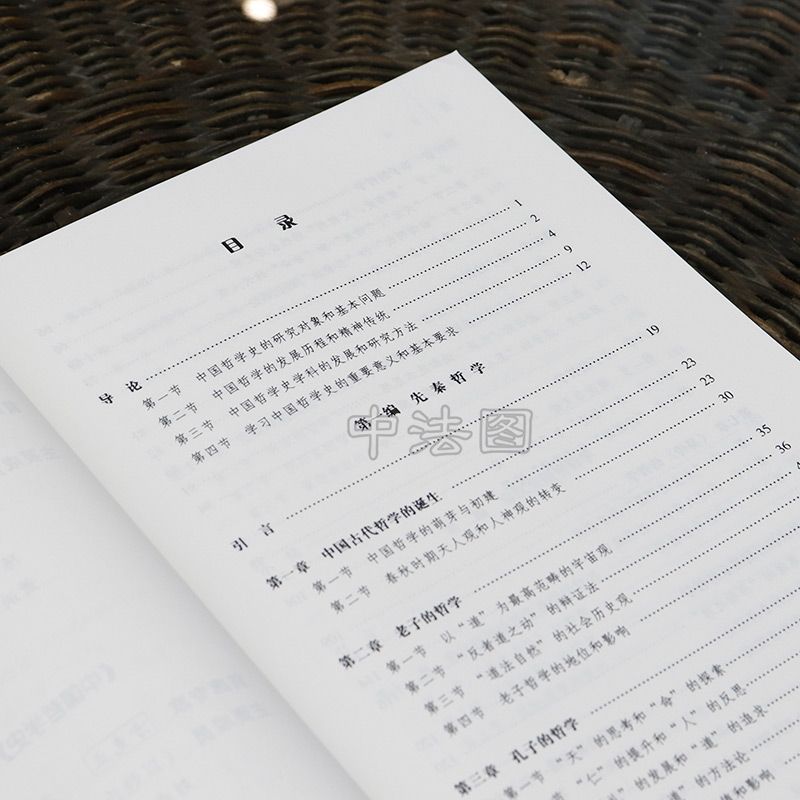 目 录
导 论 1
第一节 中国哲学史的研究对象和基本问题 2
第二节 中国哲学的发展历程和精神传统 4
第三节 中国哲学史学科的发展和研究方法 9
第四节 学习中国哲学史的重要意义和基本要求 12
第一编 先秦哲学
引 言 19
第一章 中国古代哲学的诞生 23
第一节 中国哲学的萌芽与初建 23
第二节 春秋时期天人观和人神观的转变 30
第二章 老子的哲学 35
第一节 以“道”为最高范畴的宇宙现 36
第二节 “反者道之动”的辩证法
第三节 “道法自然”的社会历史观
第四节 老子哲学的地位和影响
第三章 孔子的哲学
第一节 “天”的思考和“命”的探索
节 “仁”的提升和“人”的反思
”的发展和“道”的追求
道”的方法论
和影响
中法图